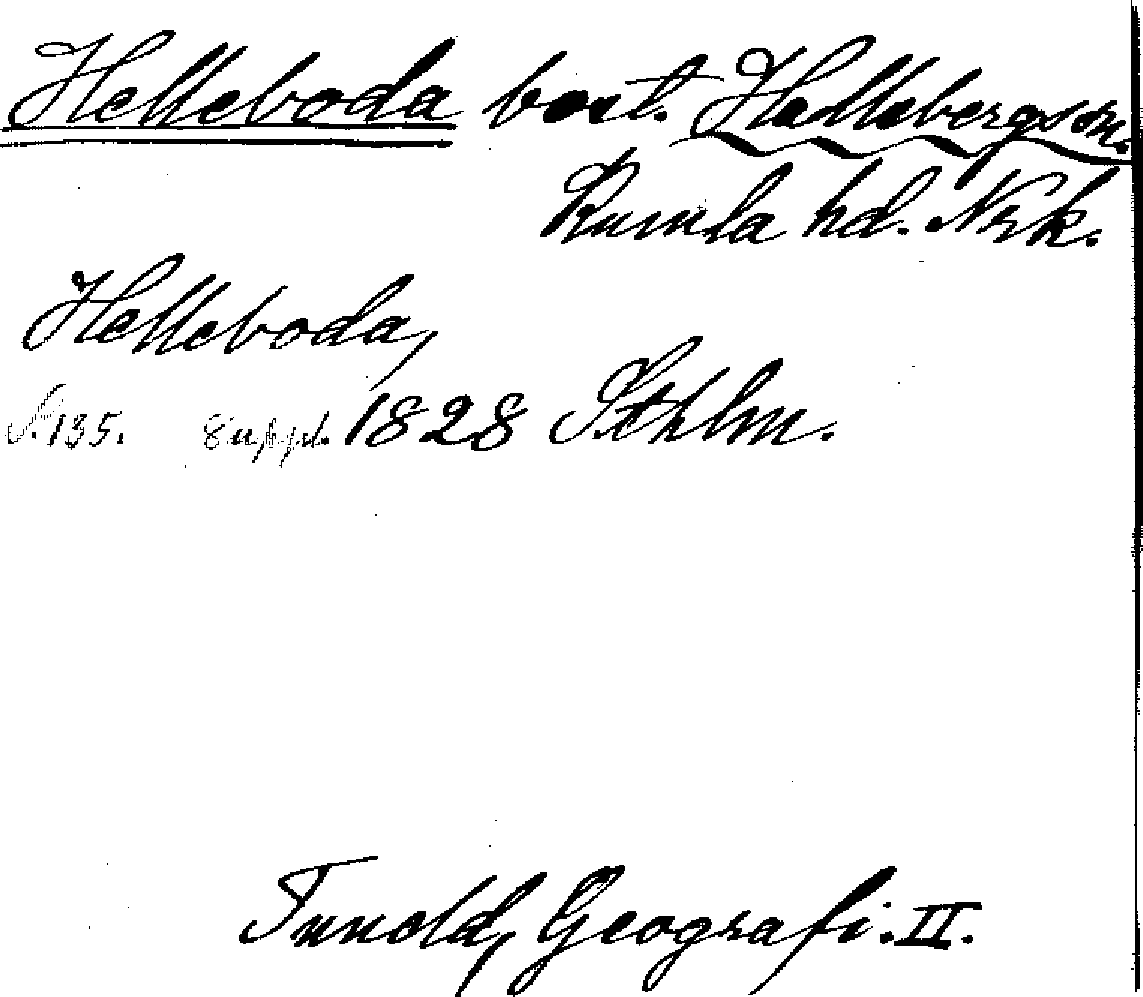 Helleboda bost. Hallsbergs sn.
Kumla hd. Nrk.
Helleboda,
S. 135. Suppl. 1828 Sthlm.
Tuneld, Geografi. II.